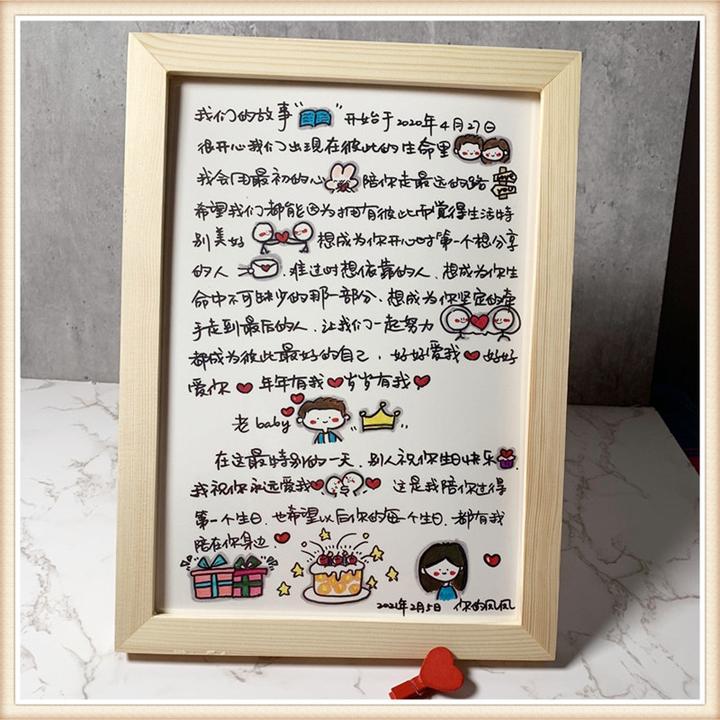 我们的故事 开始于2020年4月27日
很开心我们出现在彼此的生命里
我会用最初的心 陪你走最远的路
希望我们都能因为拥有彼此而觉得生活特
别美好 想成为你开心时第一个想分享
的人 难过时想依靠的人,想成为你生
命中不可缺少的那一部分,想成为你坚定的牵
手走到最后的人,让我们一起努力
都成为彼此最好的自己,好好爱我 好好
爱你 年年有我 岁岁有我
老baby
在这最特别的一天,别人祝你生日快乐
我祝你永远爱我 这是我陪你过得
第一个生日,也希望以后你的每一个生日,都有我
陪在你身边.
2021年2月5日 你的凤凤